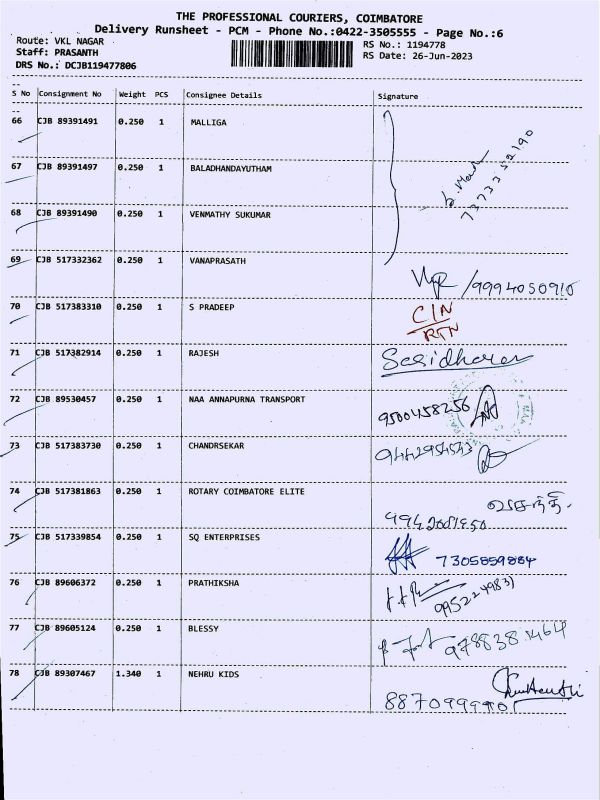 THE PROFESSIONAL COURIERS, COIMBATORE
Delivery Runsheet - PCM - Phone No.:0422-3505555 - Page No.:6
Route: VKL NAGAR RS No.: 1194778
Staff: PRASANTH RS Date: 26-Jun-2023
DRS No.: DCJB119477806
S No Consignment No Weight PCS Consignee Details Signature
66 CJB 89391491 0.250 1 MALLIGA
67 CJB 89391497 0.250 1 BALADHANDAYUTHAM
68 CJB 89391490 0.250 1 VENMATHY SUKUMAR
7373352190
69 CJB 517332362 0.250 1 VANAPRASATH
/9994050910
70 CJB 517383310 0.250 1 S PRADEEP
C/N
RTN
71 CJB 517382914 0.250 1 RAJESH
Sasidharan
72 CJB 89530457 0.250 1 NAA ANNAPURNA TRANSPORT
9500458256
73 CJB 517383730 0.250 1 CHANDRSEKAR
9442954543
74 CJB 517381863 0.250 1 ROTARY COIMBATORE ELITE
வசந்தி.
75 CJB 517339854 0.250 1 SQ ENTERPRISES
7305859884
76 CJB 89606372 0.250 1 PRATHIKSHA
9952249831
77 CJB 89605124 0.250 1 BLESSY
9788381464
78 CJB 89307467 1.340 1 NEHRU KIDS
8870999901